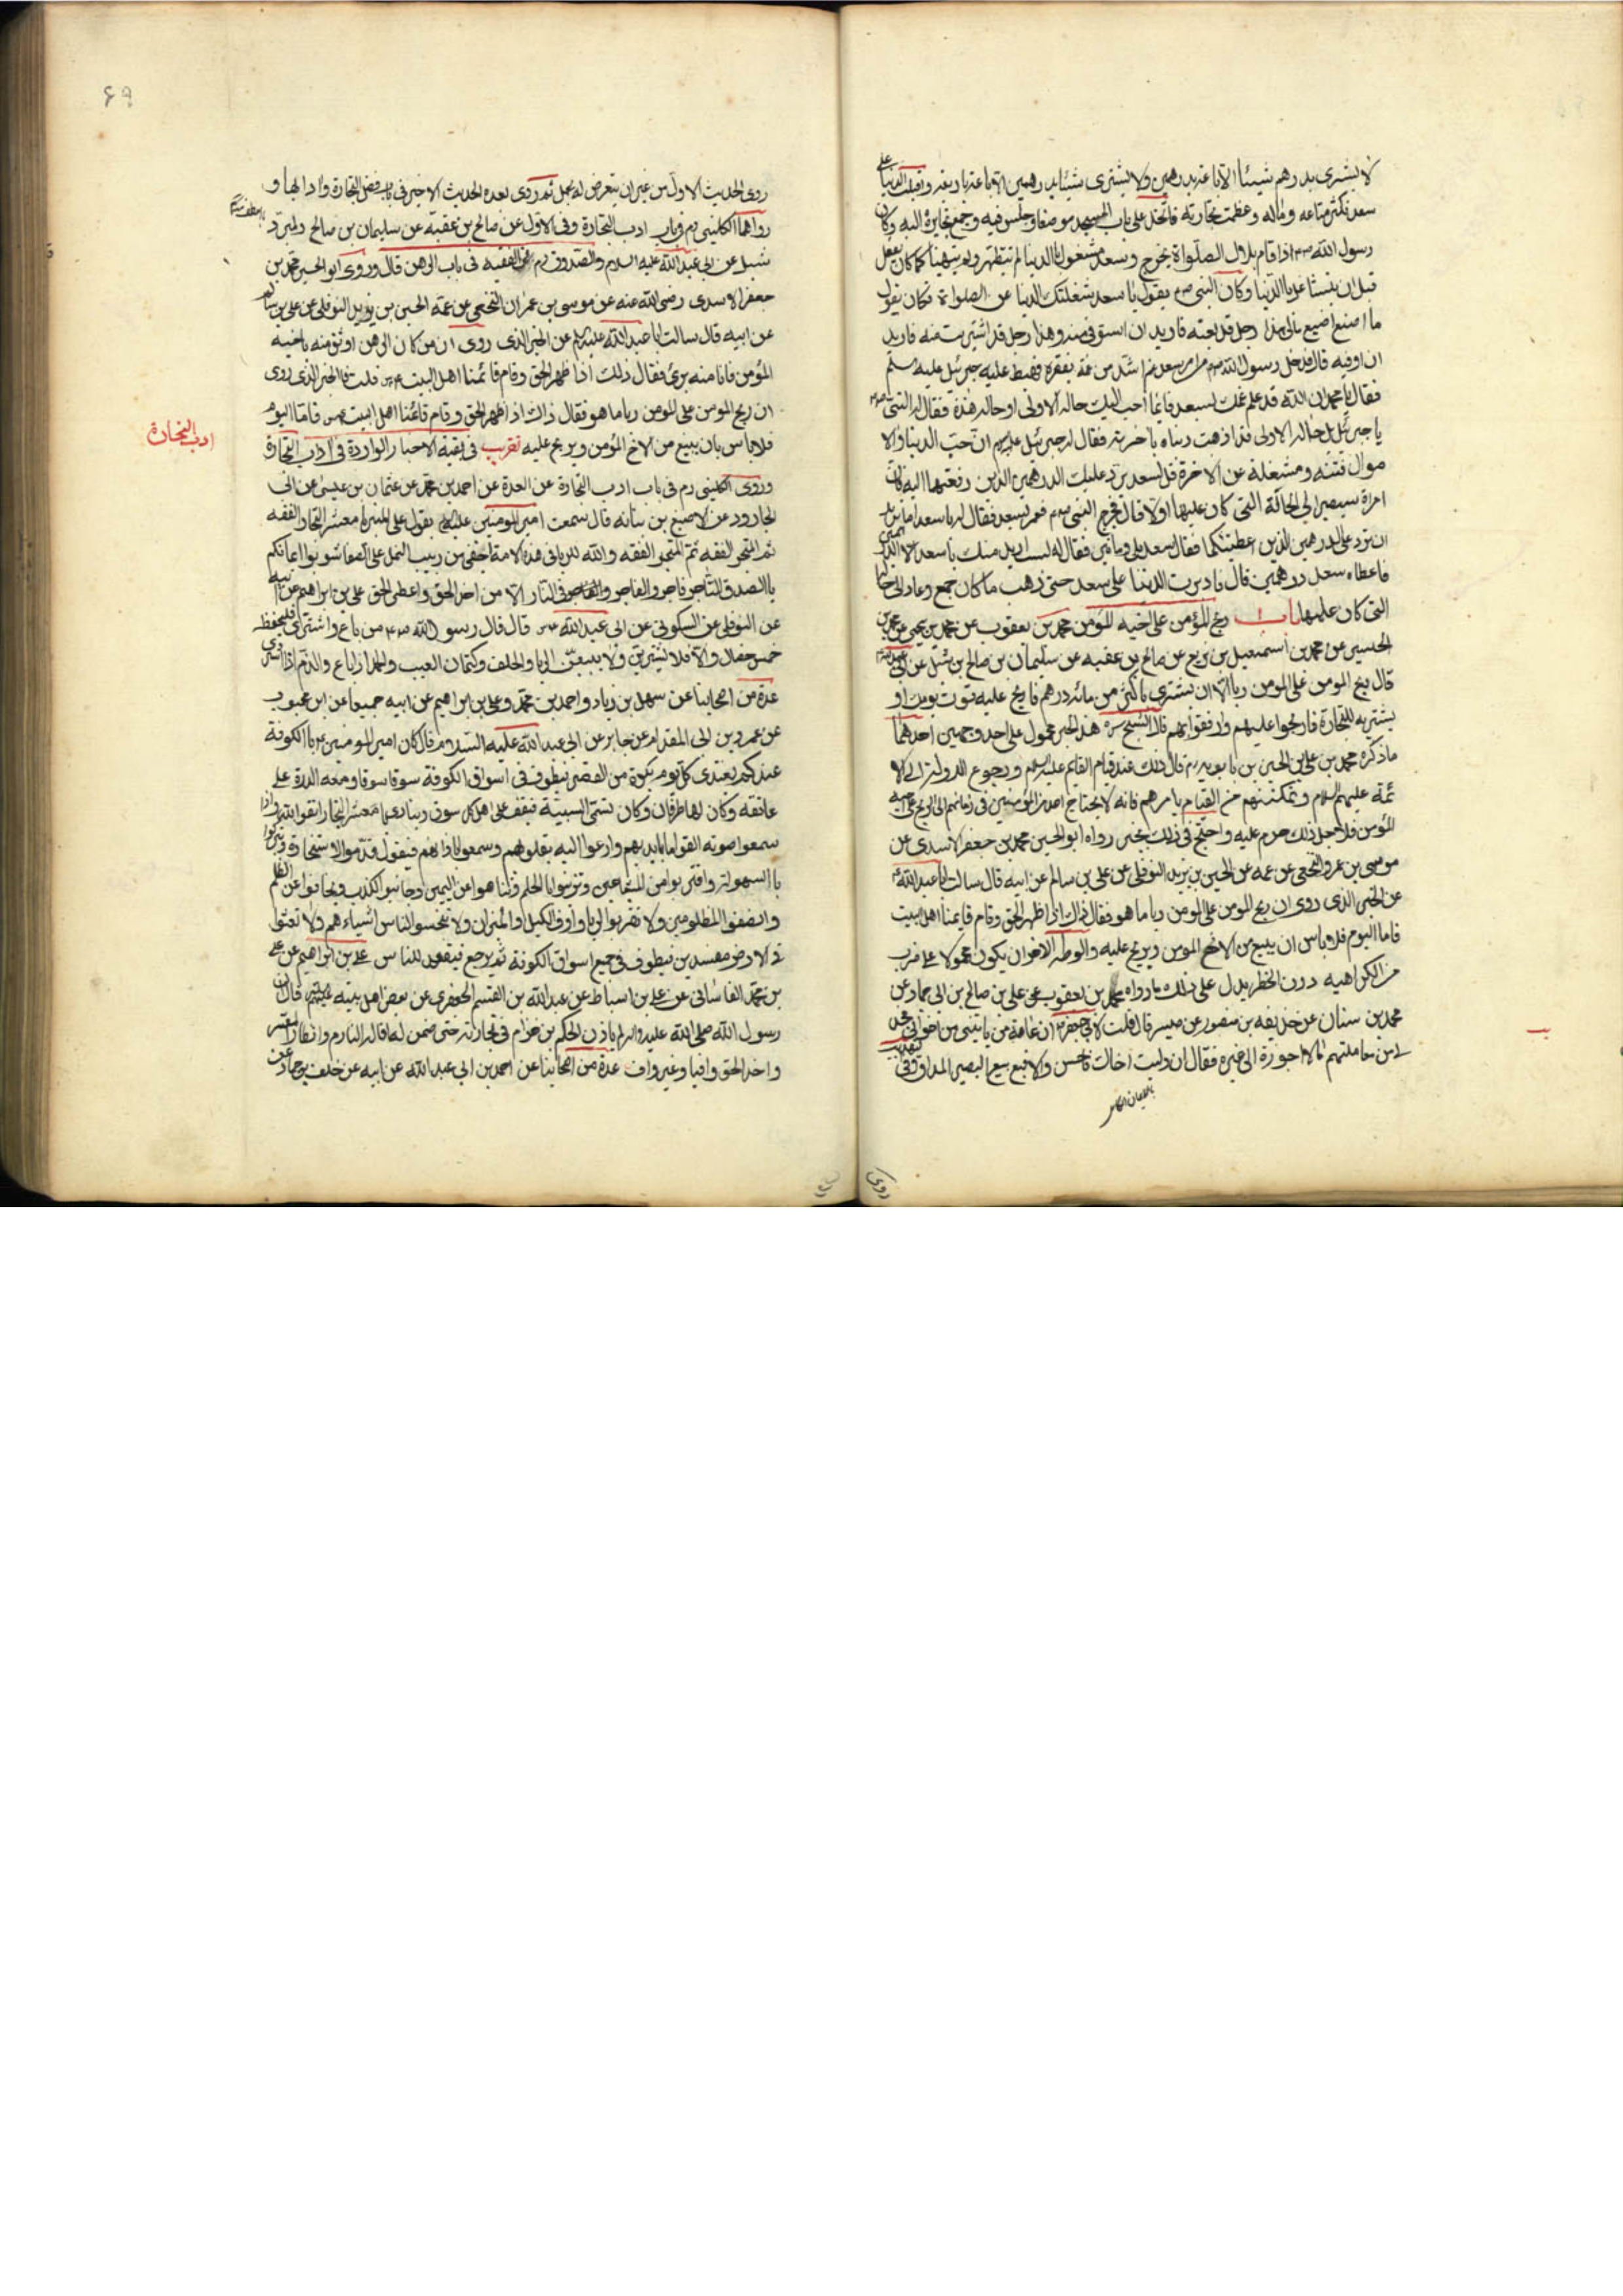 لا يشترى بدرهم شيئا الا باعه بدرهمين ولا يشترى شيئا بدرهمين الا باعه باربعة واقبلت الدنيا على
سعد فكثر متاعه وماله وعظمت تجارته فاتخذ على باب المسجد موضعا وجلس فيه وجمع تجايره اليه وكان
رسول الله ص اذا قام بلال الصلواة يخرج وسعد مشغول بالدنيا لم يتطهر ولم يتهيئا كما كان يفعل
قبل ان يتشاغل بالدنيا وكان النبى ص يقول يا سعد شغلتك الدنيا عن الصلواة فكان يقول
ما اصنع اضيع مالى هذا رجل قد بعته فاريد ان استوفى منه وهذا رجل قد اشتريت منه فاريد
ان اوفيه قال فدخل رسول الله ص من امر سعد غم اشد من غمه بفقره فهبط عليه جبرئيل عليه السلم
فقال يا محمد ان الله قد علم غمك لسعد فايما احب اليك حاله الاولى او حاله هذه فقال له النبى ص
يا جبرئيل بل حاله الاولى قد اذهبت دنياه باخرته فقال له جبرئيل ع ان حب الدنيا والا
موال فتنة ومشغلة عن الاخرة قل لسعد يرد عليك الدرهمين الذين دفعتهما اليه فان
امره سيصير الى الحالة التى كان عليها اولا قال فخرج النبى ص فمر بسعد فقال له يا سعد اما تريد
ان ترد على الدرهمين الذين اعطيتكما فقال سعد بلى ومأتين فقال له لست اريد منك يا سعد الا الدرهمين
فاعطاه سعد درهمين قال فادبرت الدنيا على سعد حتى ذهب ما كان جمع وعاد الى حاله
التى كان عليها باب ربح المؤمن على اخيه المؤمن محمد بن يعقوب عن محمد بن يحيى عن محمد بن
الحسين عن محمد بن اسمعيل بن بزيع عن صالح بن عقبه عن سليمان بن صالح بن شبل عن ابى عبد الله ع
قال ربح المومن على المومن ربا الا ان يشترى باكثر من مائة درهم فاربح عليه قوت يومك او
يشتريه للتجارة فاربحوا عليهم وارفقوا بهم قال الشيخ ره هذا الخبر محمول على احد وجهين احدهما
ما ذكره محمد بن على بن الحسين بن بابويه ره قال ذلك عند قيام القايم عليه السلم ورجوع الدولة الى الا
ئمة عليهم السلام وتمكنهم من القيام بامرهم فانه لا يحتاج احد من المؤمنين فى زمانهم الى الربح على اخيه
المؤمن فلاجل ذلك حرم عليه واحتج فى ذلك بخبر رواه ابو الحسين محمد بن جعفر الاسدى عن
موسى بن عمر النخعى عن عمه عن الحسين بن يزيد النوفلى عن على بن سالم عن ابيه قال سالت ابا عبد الله ع
عن الخبر الذى روى ان ربح المومن على المومن ربا ما هو فقال ذاك اذا ظهر الحق وقام قايمنا اهل البيت
فاما اليوم فلا باس ان يبيع من الاخ المومن ويربح عليه والوجه الاخر ان يكون محمولا على ضرب
من الكراهيه دون الحظر يدل على ذلك ما رواه محمد بن يعقوب عن على بن صالح بن ابى حماد عن
محمد بن سنان عن حذيفه بن منصور عن ميسر قال قلت لابى جعفر ع ان عامة من ياتينى من اخوانى فحد
لى من معاملتهم ما لا اجوزه الى غيره فقال ان وليت اخاك فحسن والا فبع بيع البصير المداق وفى
روى
روى الحديث الاول من غير ان يتعرض له بحمل ثم روى بعده الحديث الاخير فى باب فضل التجارة وادابها و
رواهما الكلينى ره فى باب ادب التجارة وفى الاول عن صالح بن عقبة عن سليمان بن صالح
شبل عن ابى عبد الله عليه السلام والصدوق ره فى الفقيه فى باب الرهن قال وروى ابو الحسين محمد بن
جعفر الاسدى رضى الله عنه عن موسى بن عمران النخعى عن عمه الحسين بن يزيد النوفلى عن على بن سالم
عن ابيه قال سالت ابا عبد الله عليه السلم عن الخبر الذى روى ان من كان الرهن اوثق منه باخيه
المؤمن فانا منه برئ فقال ذلك اذا ظهر الحق وقام قائمنا اهل البيت ع قلت فالخبر الذى روى
ان ربح المومن على المومن ربا ما هو فقال ذاك اذا ظهر الحق وقام قائمنا اهل البيت ع فاما اليوم
فلا باس بان يبيع من الاخ المؤمن ويربح عليه تقريب فى بقية الاخبار الواردة فى آداب التجارة
ادب التجارة
وروى الكلينى ره فى باب ادب التجارة عن العدة عن احمد بن محمد عن عثمان بن عيسى عن ابى
الجارود عن الاصبغ بن نباته قال سمعت امير المومنين عليه السلم يقول على المنبر يا معشر التجار الفقه
ثم المتجر الفقه ثم المتجر الفقه والله للربا فى هذه الامة اخفى من دبيب النمل على الصفا شوبوا ايمانكم
بالصدق التاجر فاجر والفاجر فى النار الا من اخذ الحق واعطى الحق على بن ابراهيم عن ابيه
عن النوفلى عن السكونى عن ابى عبد الله ع قال قال رسول الله ص من باع واشترى فليحفظ
خمس خصال والا فلا يشترين ولا يبيعن الربا والحلف وكتمان العيب والحمد اذا باع والذم اذا اشترى
عدة من اصحابنا عن سهل بن زياد واحمد بن محمد وعلى بن ابراهيم عن ابيه جميعا عن ابن محبوب
عن عمرو بن ابى المقدام عن جابر عن ابى عبد الله عليه السلم قال كان امير المومنين ع بالكوفة
عندكم يغتدى كل يوم بكرة من القصر يطوف فى اسواق الكوفة سوقا سوقا ومعه الدرة على
عاتقه وكان لها طرفان وكان تسمى السبيبة فيقف على اهل كل سوق وينادى يا معشر التجار اتقوا الله فاذا
سمعوا صوته القوا ما بايديهم وارعوا اليه بقلوبهم وسمعوا باذانهم فيقول قدموا الاستخارة وتبركوا
بالسهولة واقتربوا من المبتاعين وتزينوا بالحلم وتناهوا عن اليمين وجانبوا الكذب وتجافوا عن الظلم
وانصفوا المظلومين ولا تقربوا الربا واوفوا الكيل والميزان ولا تبخسوا الناس اشياءهم ولا تعثوا
فى الارض مفسدين فيطوف فى جميع اسواق الكوفة ثم يرجع فيقعد للناس على بن ابراهيم عن على
بن محمد القاسانى عن على بن اسباط عن عبد الله بن القسم الجعفرى عن بعض اهل بيته قال ان
رسول الله صلى الله عليه واله لم ياذن لحكم بن حزام فى تجارته حتى ضمن له اقالة النادم وانظار المعسر
واخذ الحق وافيا وغير واف عدة من اصحابنا عن احمد بن ابى عبد الله عن ابيه عن خلف بن حماد عن